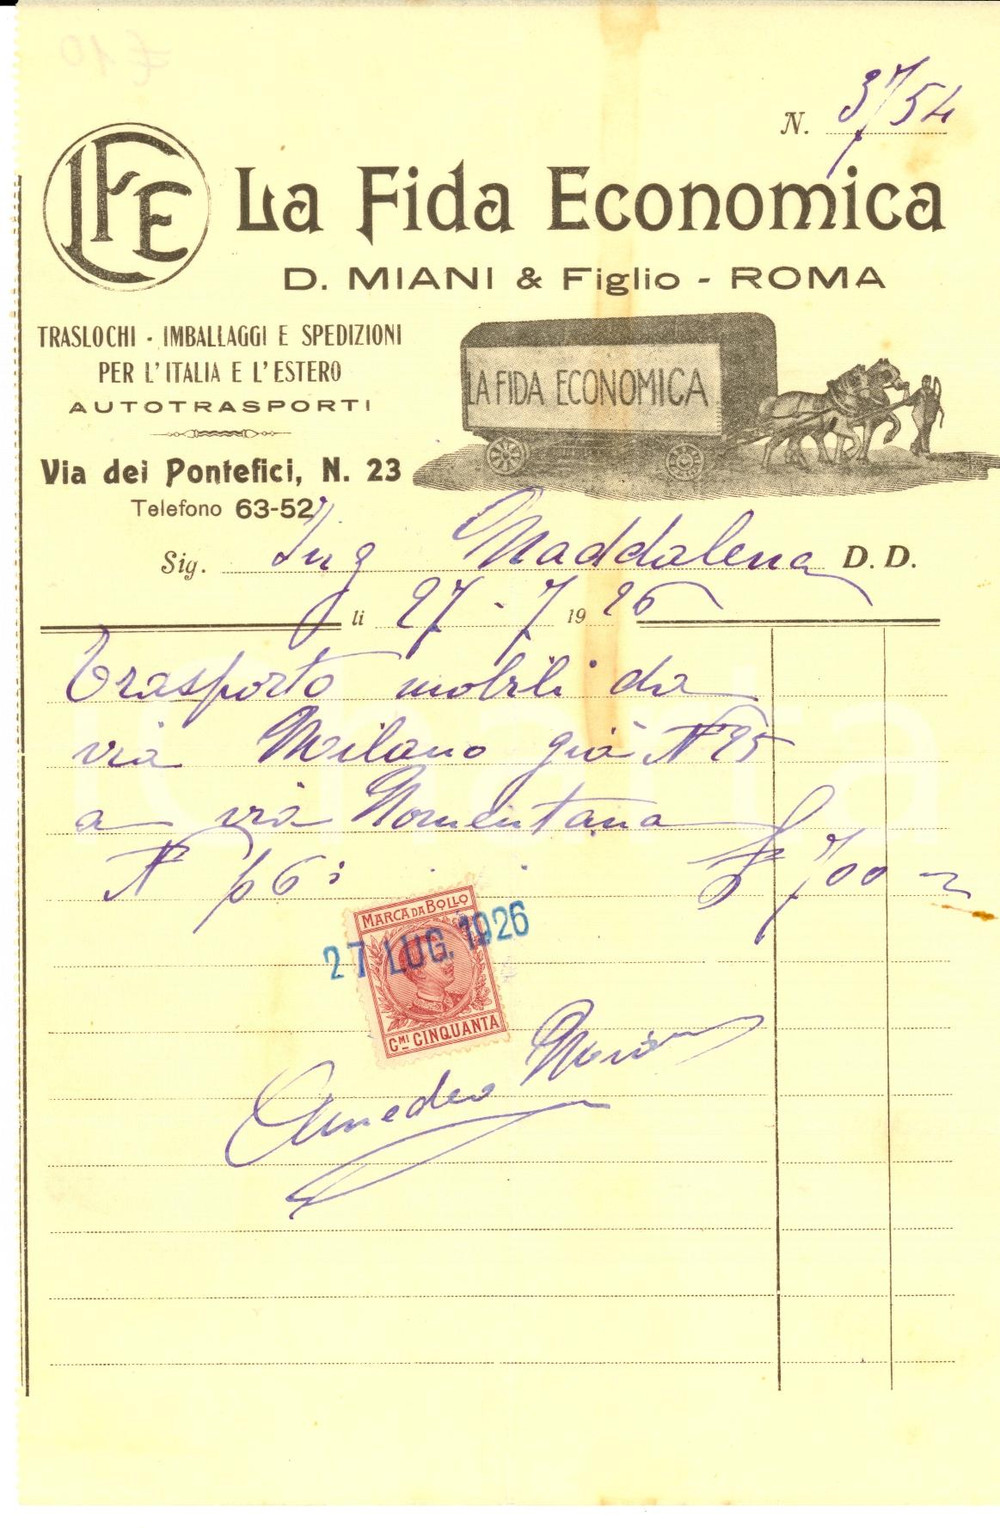 N. 3754
LFE
La Fida Economica
D. MIANI & Figlio - ROMA
TRASLOCHI - IMBALLAGGI E SPEDIZIONI
PER L'ITALIA E L'ESTERO
AUTOTRASPORTI
LA FIDA ECONOMICA
Via dei Pontefici, N. 23
Telefono 63-52
Sig. Ing Maddalena D. D.
li 27-7 1926
Trasporto mobili da
via Milano già N 95
a via Nomentana
N 66: £ 700
MARCA DA BOLLO
27 LUG. 1926
CMI CINQUANTA
Amedeo